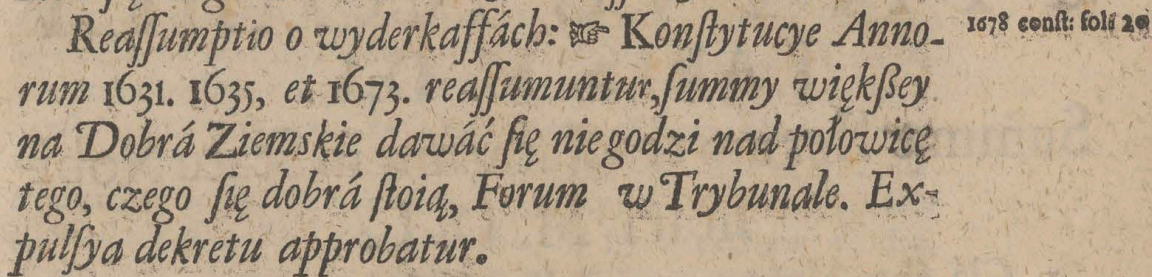 Reaſſumptio o wyderkaffách: ☞ Konſtytucye Anno-
1678 conſt: foli 20
rum 1631. 1635, et 1673. reaſſumuntur, ſummy więkßey
na Dobrá Ziemskie dawáć ſię nie godzi nad połowicę
tego, czego ſię dobrá ſtoią, Forum w Trybunale. Ex-
pulſya dekretu approbatur.